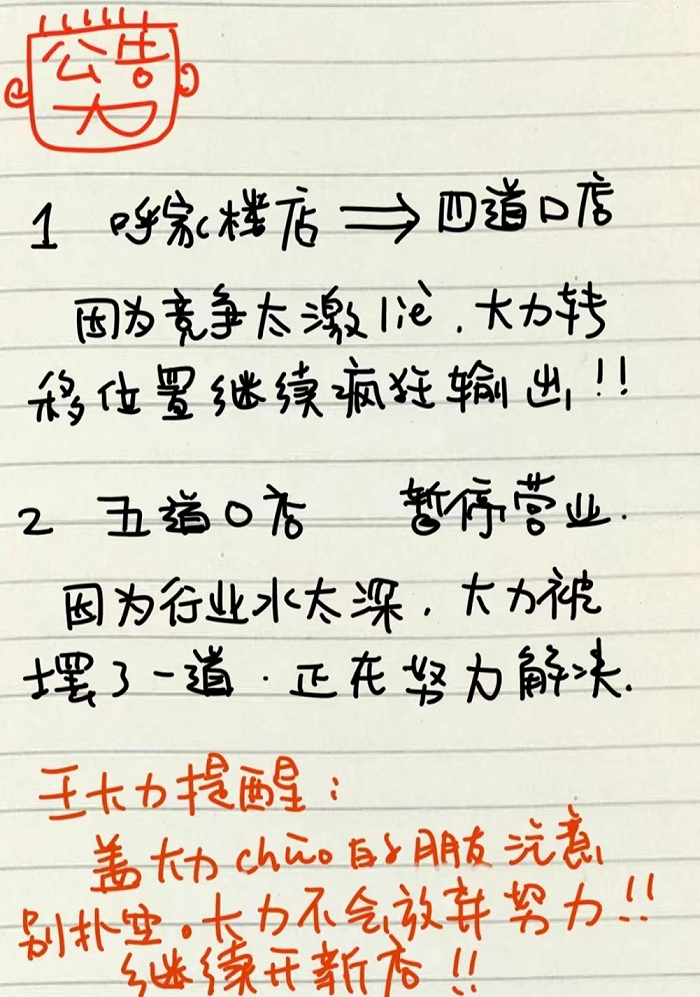 公告
1 呼家楼店 ⇒ 四道口店
因为竞争太激liè，大力转
移位置继续疯狂输出!!
2 五道口店 暂停营业.
因为行业水太深，大力被
摆了一道.正在努力解决.
王大力提醒：
盖大力chūo的朋友注意
别扑空。大力不会放弃努力!!
继续开新店!!